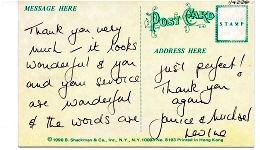 MESSAGE HERE
POST CARD
STAMP
Thank you very
much - it looks
wonderful & you
and your service
are wonderful
& the words are
ADDRESS HERE
just perfect!
Thank you
again
Janice & Michael
Levine
© 1990 B. Shackman & Co., Inc., N.Y., N.Y. 10003 No. 8193 Printed in Hong Kong